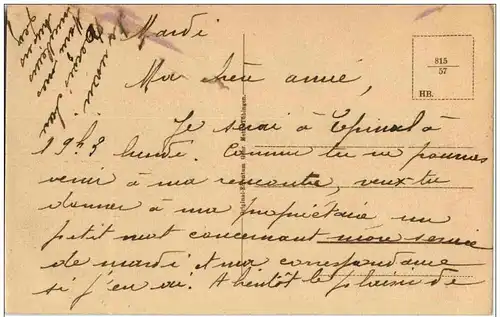 Mardi
Ma chère aimée,
Je serai à Epinal à
19h3 lundi. Comme tu ne pourras
venir à ma rencontre, veux-tu
donner à ma propriétaire un
petit mot concernant mon service
de mardi et ma correspondance
si j'en ai. A bientôt le plaisir de
815
57
HB.